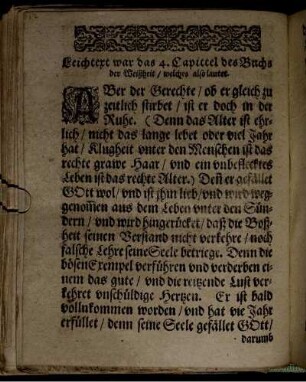 Leichtext war das 4. Capittel des Buchs
der Weißheit / welches also lautet.
ABer der Gerechte / ob er gleich zu
zeitlich stirbet / ist er doch in der
Ruhe. (Denn das Alter ist ehr-
lich / nicht das lange lebet oder viel Jahr
hat / Klugheit vnter den Menschen ist das
rechte grawe Haar / vnd ein vnbeflecktes
Leben ist das rechte Alter.) Deñ er gefället
GOtt wol / vnd ist jhm lieb / vnd wird weg-
genom̃en aus dem Leben vnter den Sün-
dern / vnd wird hingerücket / daß die Boß-
heit seinen Verstand nicht verkehre / noch
falsche Lehre seine Seele betriege. Denn die
bösen Exempel verführen vnd verderben ei-
nem das gute / vnd die reitzende Lust ver-
kehret vnschüldige Hertzen. Er ist bald
vollnkommen worden / vnd hat vie Jahr
erfüllet / denn seine Seele gefället GOtt /
darumb